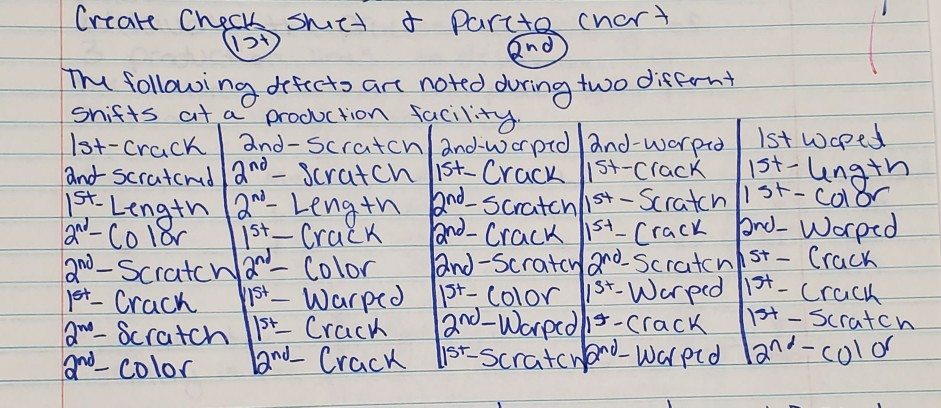 Create Check sheet & Pareto chart
1st 2nd
The following defects are noted during two different
shifts at a production facility.
1st-Crack 2nd-Scratch 2nd-warped 2nd-warped 1st Waped
2nd Scratchd 2nd-Scratch 1st-Crack 1st-Crack 1st-Length
1st-Length 2nd-Length 2nd-Scratch 1st-Scratch 1st-Color
2nd-Color 1st-Crack 2nd-Crack 1st-Crack 2nd-Warped
2nd-Scratch 2nd-Color 2nd-Scratch 2nd-Scratch 1st-Crack
1st-Crack 1st-Warped 1st-Color 1st-Warped 1st-Crack
2nd-Scratch 1st-Crack 2nd-Warped 1st-Crack 1st-Scratch
2nd-Color 2nd-Crack 1st-Scratch 2nd-Warped 2nd-color